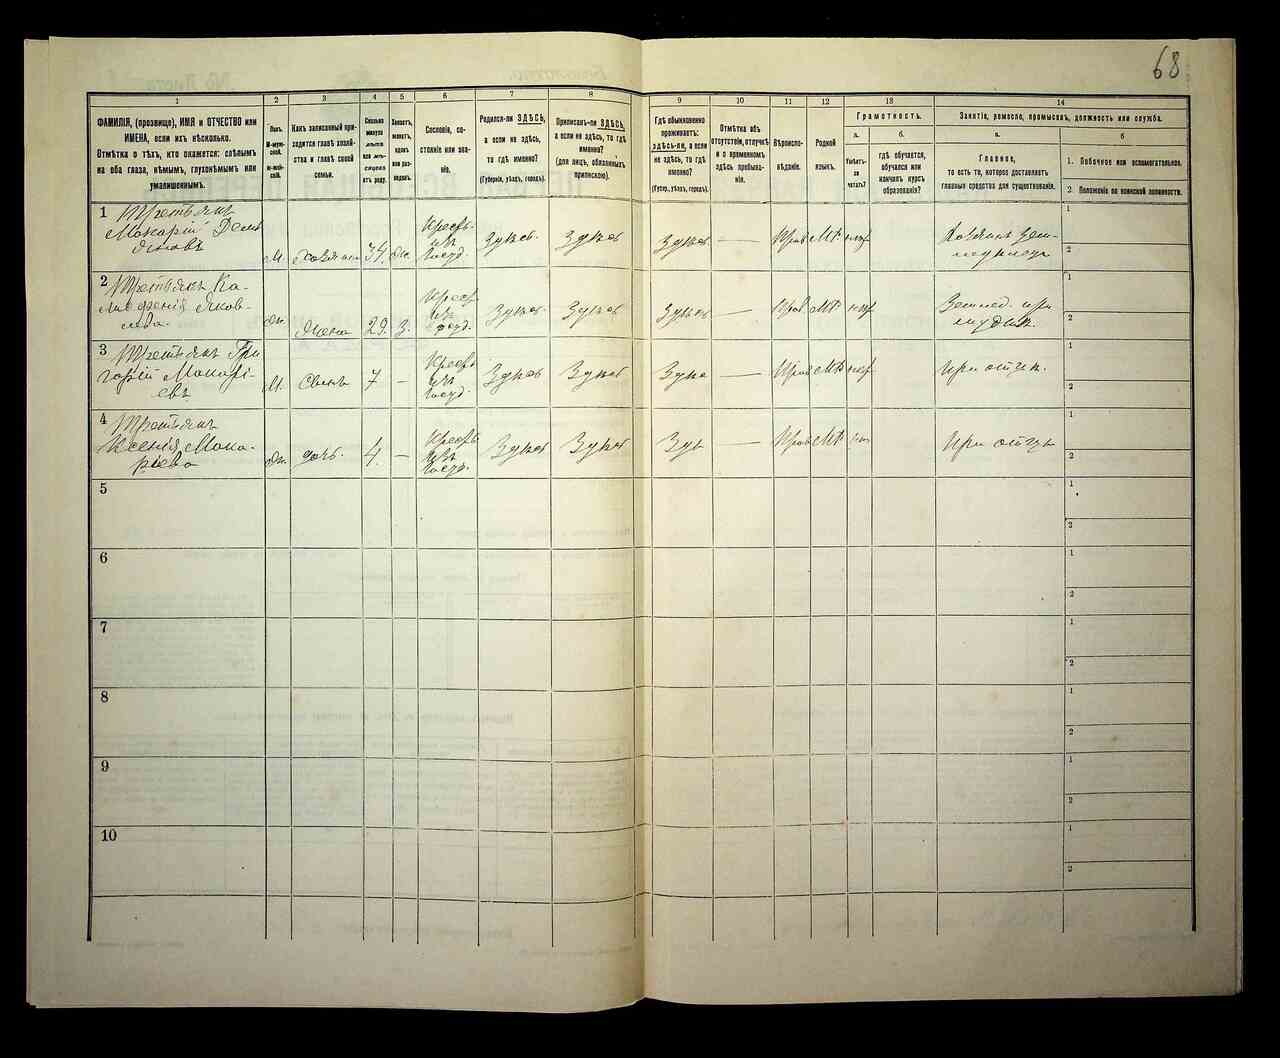 68
1
2
3
4
5
6
7
8
9
10
11
12
13
14
ФАМИЛІЯ, (прозвище), ИМЯ и ОТЧЕСТВО или
ИМЕНА, если ихъ нѣсколько.
Отмѣтка о тѣхъ, кто окажется: слѣпымъ
на оба глаза, нѣмымъ, глухонѣмымъ или
умалишеннымъ.
Полъ.
М-мужской.
Ж-женскій.
Какъ записанный приходится
главѣ хозяйства
и главѣ своей
семьи.
Сколько
минуло
лѣтъ
или мѣсяцевъ
отъ роду.
Холостъ,
женатъ,
вдовъ
или разведенъ.
Сословіе, состояніе
или званіе.
Родился-ли ЗДѢСЬ,
а если не здѣсь,
то гдѣ именно?
(Губернія, уѣздъ, городъ).
Приписанъ-ли ЗДѢСЬ,
а если не здѣсь, то гдѣ
именно?
(для лицъ, обязанныхъ
припискою).
Гдѣ обыкновенно
проживаетъ:
здѣсь-ли, а если
не здѣсь, то гдѣ
именно?
(Губер., уѣздъ, городъ).
Отмѣтка объ
отсутствіи, отлучкѣ
и о временномъ
здѣсь пребываніи.
Вѣроисповѣданіе.
Родной
языкъ.
Грамотность.
а.
Умѣетъ-ли
читать?
б.
гдѣ обучается,
обучался или
кончилъ курсъ
образованія?
Занятіе, ремесло, промыселъ, должность или служба.
а.
Главное,
то есть то, которое доставляетъ
главныя средства для существованія.
б
1. Побочное или вспомогательное.
2. Положеніе по воинской повинности.
1 Третьякъ
Макарій Демьяновъ
М. Хозяинъ 34 жн. Крест. изъ госуд. Здѣсь Здѣсь Здѣсь — Прав МР нѣт Хозяинъ земледѣлецъ
1
2
2 Третьякъ
Яковлева
жн. жена 29 з. Крест изъ госуд. Здѣсь Здѣсь Здѣсь — Прав МР нѣт
1
2
3 Третьякъ Григорій
Макаріевъ
М. Сынъ 7 — Крест изъ госуд. Здѣсь Здѣсь Здѣсь — Прав МР нѣт При отцѣ.
1
2
4 Третьякъ
Ксенія Макаріева
жн. дочь. 4. — Крест изъ госуд. Здѣсь Здѣсь Здѣсь — Прав МР нѣт При отцѣ
1
2
5
1
2
6
1
2
7
1
2
8
1
2
9
1
2
10
1
2